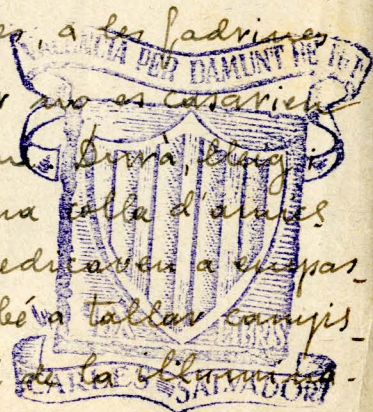 es, a les fadrines
VALENCIA PER DAMUNT DE TOT
r no es casarien
ne. Durà, lleig i
na colla d'amics
edicaven a empas-
bé a tallar camyis-
de la illumina-
CARLES SALVADOR